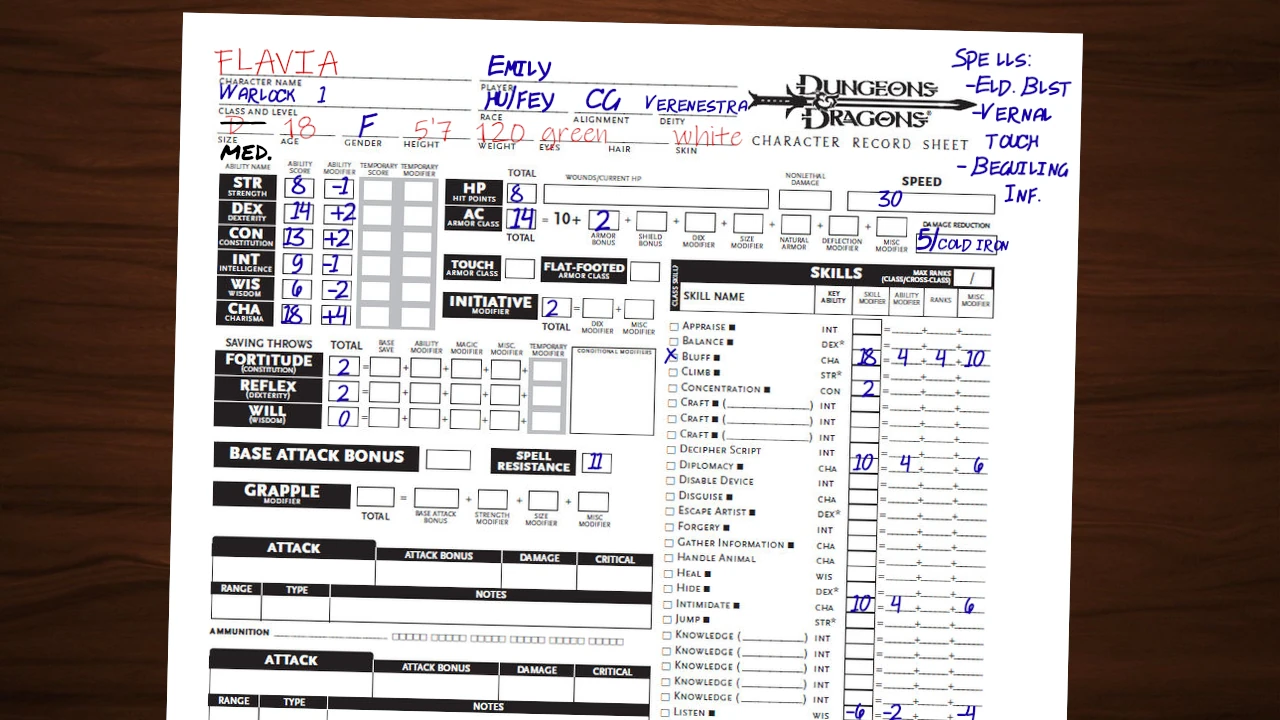 FLAVIA
EMILY
SPELLS:
CHARACTER NAME
PLAYER
-ELD. BLST
WARLOCK 1
HU/FEY CG VERENESTRA
DUNGEONS
&
DRAGONS®
-VERNAL
TOUCH
CLASS AND LEVEL
RACE ALIGNMENT DEITY
D 18 F 5'7 120 green white
CHARACTER RECORD SHEET
SIZE AGE GENDER HEIGHT WEIGHT EYES HAIR SKIN
MED.
- BEGUILING
INF.
ABILITY NAME ABILITY SCORE ABILITY MODIFIER TEMPORARY SCORE TEMPORARY MODIFIER
STR STRENGTH 8 -1
DEX DEXTERITY 14 +2
CON CONSTITUTION 13 +2
INT INTELLIGENCE 9 -1
WIS WISDOM 6 -2
CHA CHARISMA 18 +4
TOTAL WOUNDS/CURRENT HP NONLETHAL DAMAGE SPEED
HP HIT POINTS 8 30
AC ARMOR CLASS 14 = 10+ 2 + + + + + +
TOTAL ARMOR BONUS SHIELD BONUS DEX MODIFIER SIZE MODIFIER NATURAL ARMOR DEFLECTION MODIFIER MISC MODIFIER
DAMAGE REDUCTION
5/COLD IRON
TOUCH ARMOR CLASS FLAT-FOOTED ARMOR CLASS
INITIATIVE MODIFIER 2 = +
TOTAL DEX MODIFIER MISC MODIFIER
SAVING THROWS TOTAL BASE SAVE ABILITY MODIFIER MAGIC MODIFIER MISC. MODIFIER TEMPORARY MODIFIER CONDITIONAL MODIFIERS
FORTITUDE (CONSTITUTION) 2 = + + + +
REFLEX (DEXTERITY) 2 = + + + +
WILL (WISDOM) 0 = + + + +
BASE ATTACK BONUS SPELL RESISTANCE 11
GRAPPLE MODIFIER = + + +
TOTAL BASE ATTACK BONUS STRENGTH MODIFIER SIZE MODIFIER MISC MODIFIER
ATTACK ATTACK BONUS DAMAGE CRITICAL
RANGE TYPE NOTES
AMMUNITION
ATTACK ATTACK BONUS DAMAGE CRITICAL
RANGE TYPE NOTES
CLASS SKILL? SKILLS MAX RANKS (CLASS/CROSS-CLASS) /
SKILL NAME KEY ABILITY SKILL MODIFIER ABILITY MODIFIER RANKS MISC MODIFIER
APPRAISE ■ INT = + +
BALANCE ■ DEX* = + +
X BLUFF ■ CHA 18 = 4 + 4 + 10
CLIMB ■ STR* = + +
CONCENTRATION ■ CON 2 = + +
CRAFT ■ ( ) INT = + +
CRAFT ■ ( ) INT = + +
CRAFT ■ ( ) INT = + +
DECIPHER SCRIPT INT = + +
DIPLOMACY ■ CHA 10 = 4 + + 6
DISABLE DEVICE INT = + +
DISGUISE ■ CHA = + +
ESCAPE ARTIST ■ DEX* = + +
FORGERY ■ INT = + +
GATHER INFORMATION ■ CHA = + +
HANDLE ANIMAL CHA = + +
HEAL ■ WIS = + +
HIDE ■ DEX* = + +
INTIMIDATE ■ CHA 10 = 4 + + 6
JUMP ■ STR* = + +
KNOWLEDGE ( ) INT = + +
KNOWLEDGE ( ) INT = + +
KNOWLEDGE ( ) INT = + +
KNOWLEDGE ( ) INT = + +
KNOWLEDGE ( ) INT = + +
LISTEN ■ WIS -6 = -2 + + -4